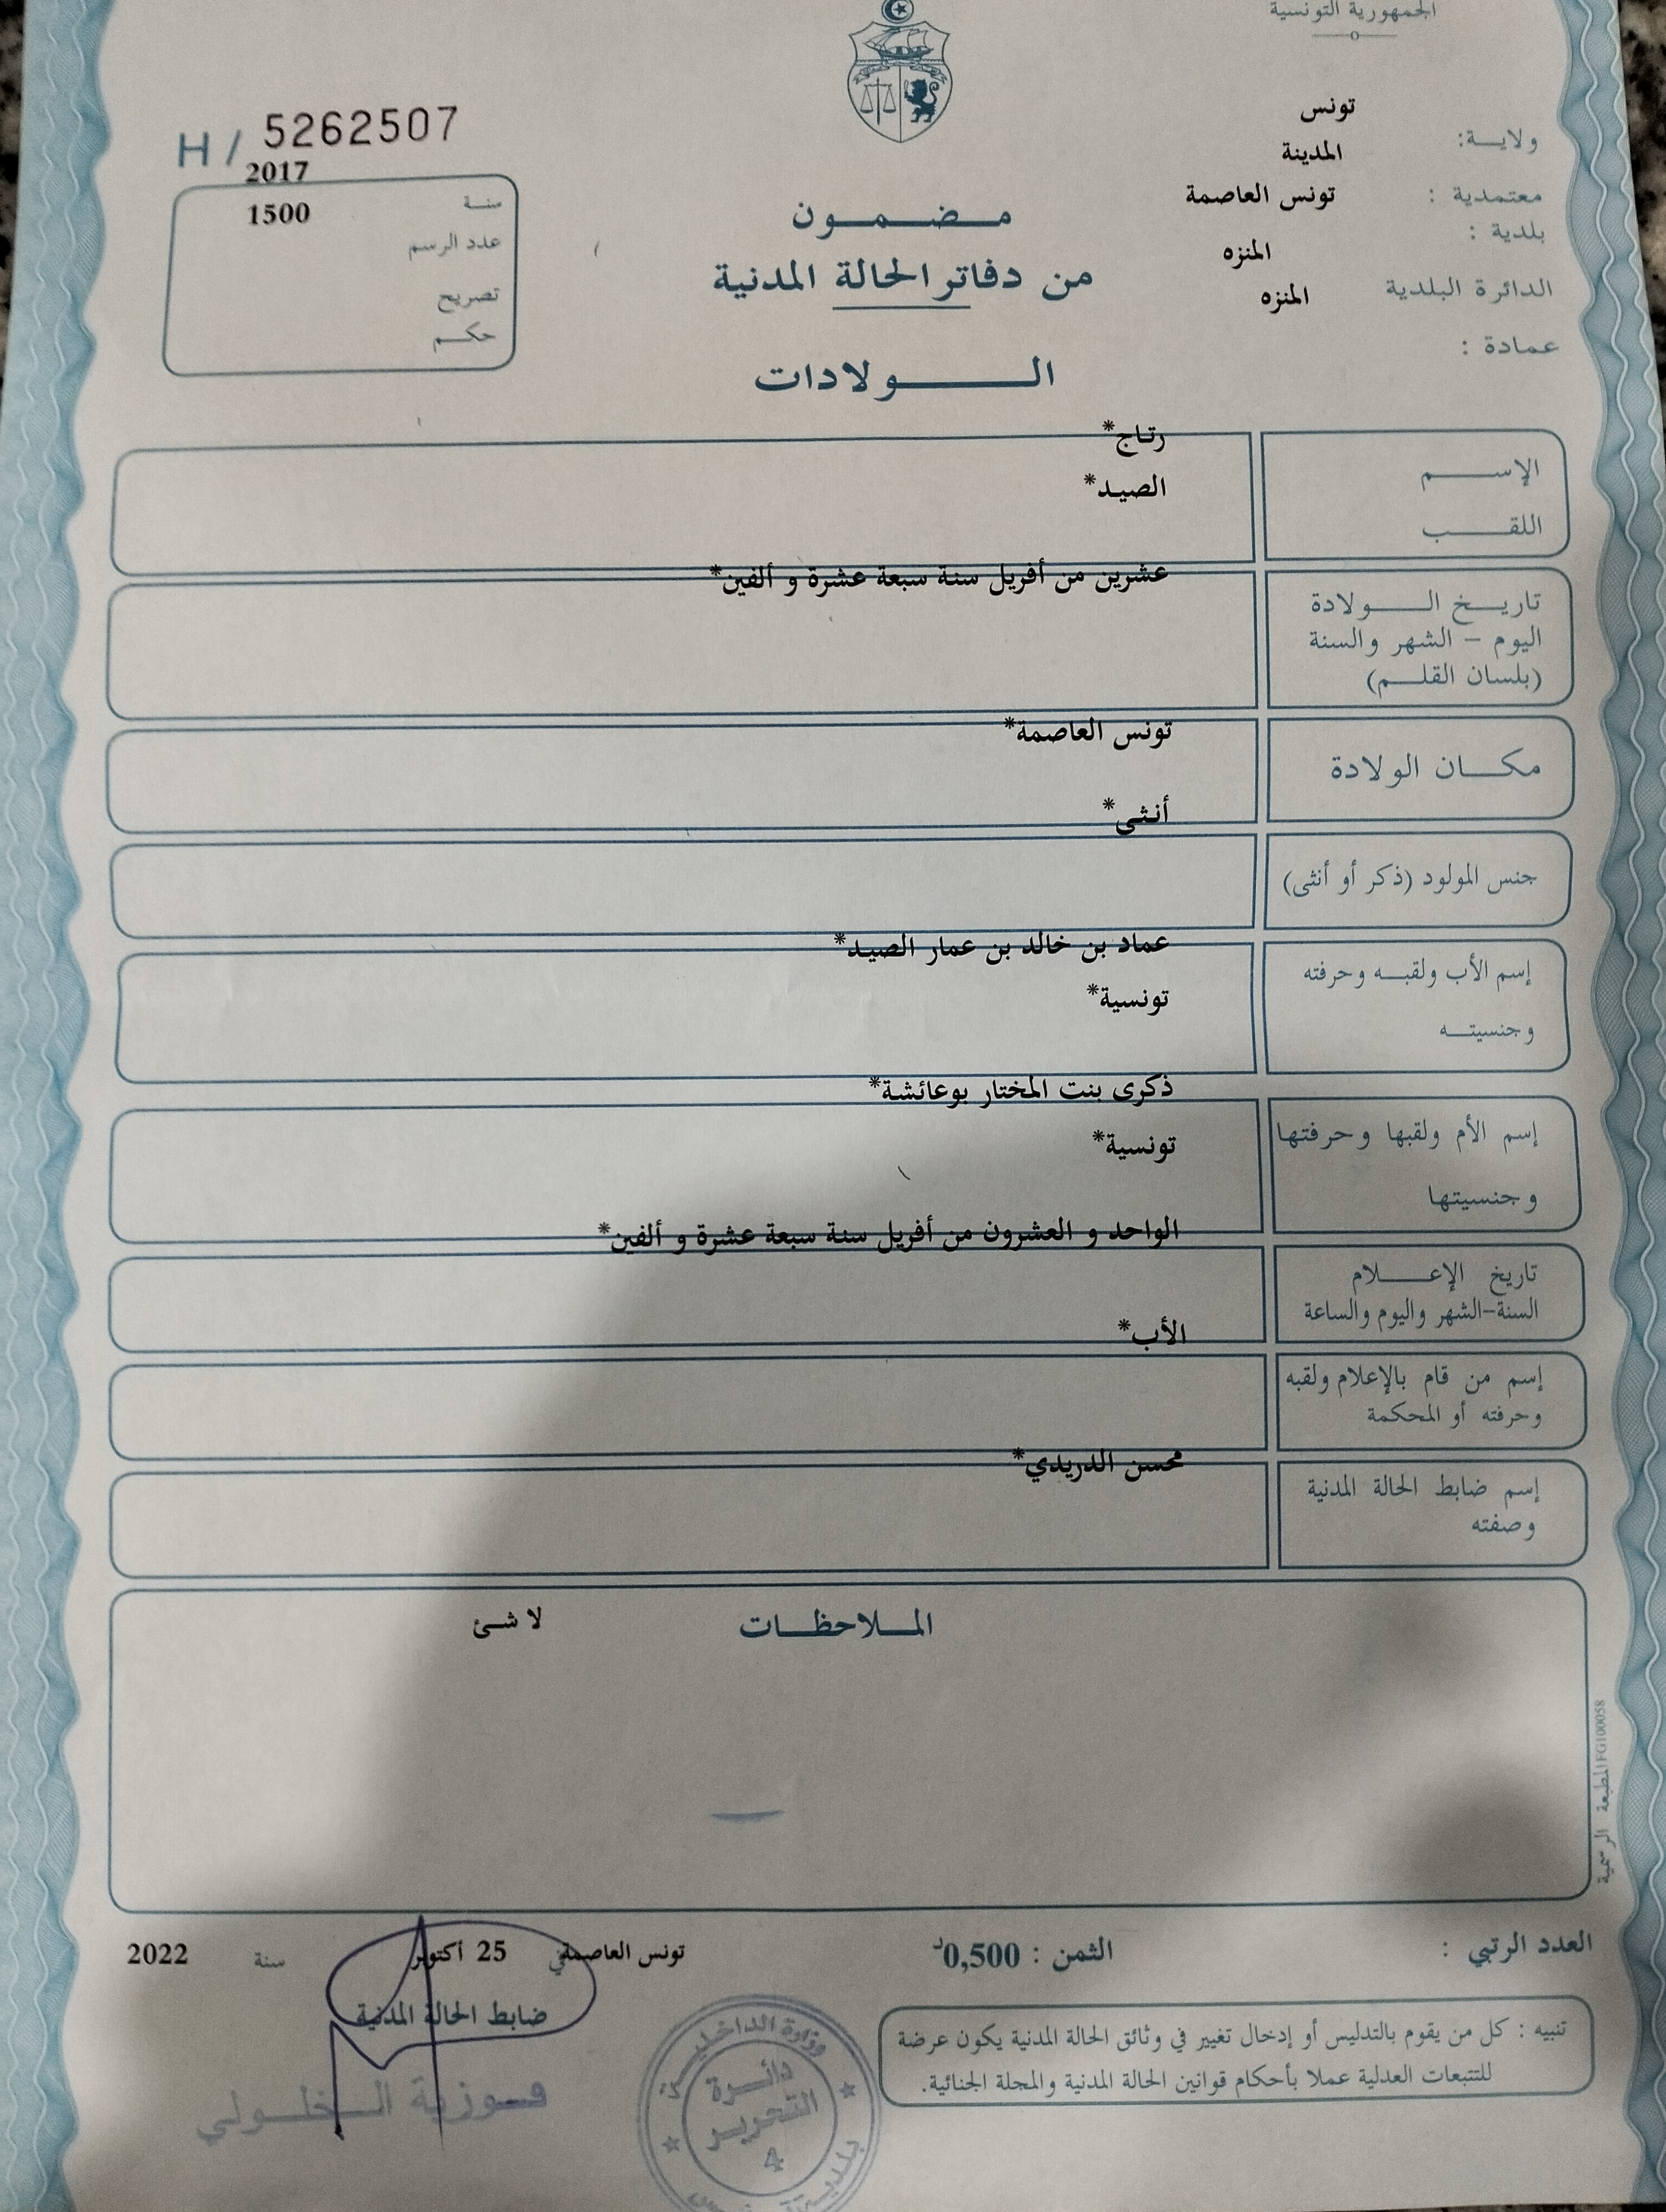 الجمهورية التونسية
ولاية: تونس
معتمدية : المدينة
بلدية : تونس العاصمة
الدائرة البلدية المنزه
عمادة : المنزه
H / 5262507
سنة 2017
عدد الرسم 1500
تصريح
حكم
مضمون
من دفاتر الحالة المدنية
الولادات
الإسم رتاج*
اللقب الصيد*
تاريخ الولادة
اليوم - الشهر والسنة
(بلسان القلم)
عشرين من أفريل سنة سبعة عشرة و ألفين*
مكان الولادة تونس العاصمة*
جنس المولود (ذكر أو أنثى) أنثى*
إسم الأب ولقبه وحرفته عماد بن خالد بن عمار الصيد*
وجنسيته تونسية*
إسم الأم ولقبها وحرفتها ذكرى بنت المختار بوعائشة*
وجنسيتها تونسية*
تاريخ الإعلام
السنة-الشهر واليوم والساعة
الواحد و العشرون من أفريل سنة سبعة عشرة و ألفين*
إسم من قام بالإعلام ولقبه
وحرفته أو المحكمة
الأب*
إسم ضابط الحالة المدنية
وصفته
محسن الدريدي*
الملاحظات لا شئ
المطبعة الرسمية FG100058
العدد الرتبي :
الثمن : 0,500د
تونس العاصمة في 25 أكتوبر سنة 2022
ضابط الحالة المدنية
فوزية الخلولي
وزارة الداخلية
دائرة
التحرير
4
بلدية تونس
تنبيه : كل من يقوم بالتدليس أو إدخال تغيير في وثائق الحالة المدنية يكون عرضة
للتتبعات العدلية عملا بأحكام قوانين الحالة المدنية والمجلة الجنائية.